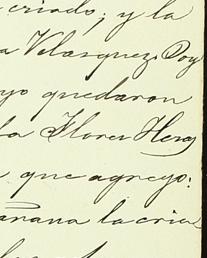 criado; y la
a Velasquez Doy
yo quedaron
la Flores Hern
que agrego:
anana la cria